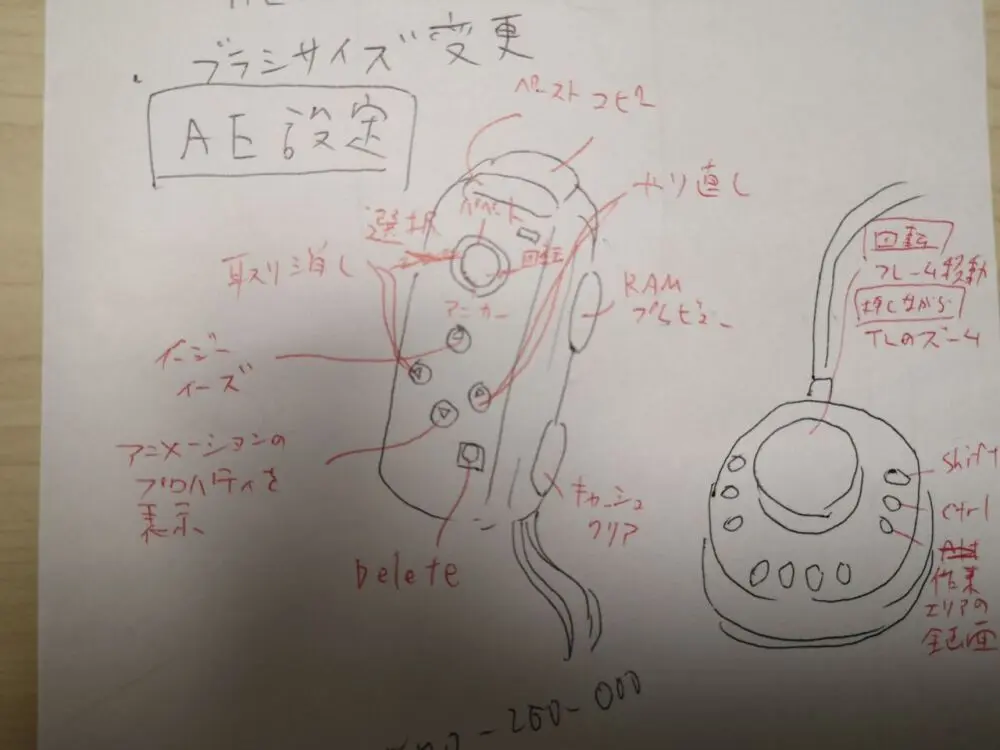 ・ブラシサイズ変更
AE設定
ペースト コピー
やり直し
選択
ペペット
回転
取り消し
アンカー
RAM
プレビュー
イージー
イーズ
アニメーションの
プロパティを
表示
キャッシュ
クリア
Delete
回転
フレーム移動
押しながら
TLのズーム
Shift
ctrl
Alt
作業
エリアの
全画面
-260-000